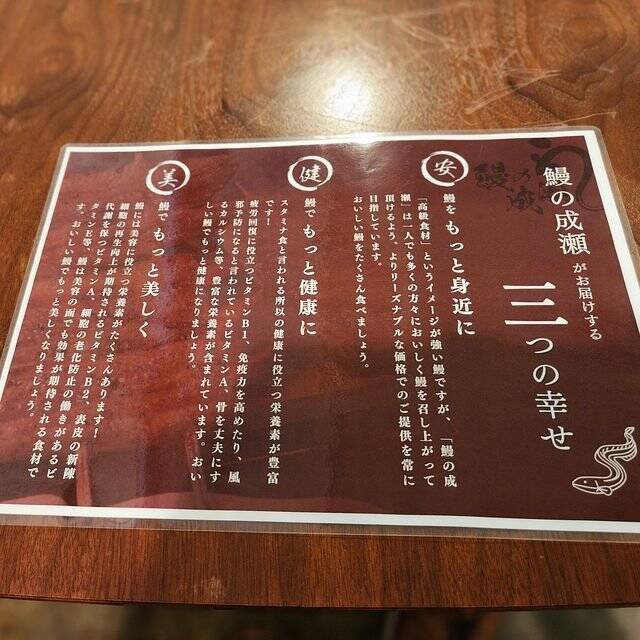 鰻の成瀬がお届けする
三つの幸せ
安
鰻をもっと身近に
「高級食材」というイメージが強い鰻ですが、「鰻の成
瀬」は一人でも多くの方々においしく鰻を召し上がって
頂けるよう、よりリーズナブルな価格でのご提供を常に
目指しています。
おいしい鰻をたくさん食べましょう。
健
鰻でもっと健康に
スタミナ食と言われる所以の健康に役立つ栄養素が豊富
です！
疲労回復に役立つビタミンB1、免疫力を高めたり、風
邪予防になると言われているビタミンA、骨を丈夫にす
るカルシウム等、豊富な栄養素が含まれています。おい
しい鰻でもっと健康になりましょう。
美
鰻でもっと美しく
鰻には美容に役立つ栄養素がたくさんあります！
細胞の再生向上が期待されるビタミンB2、表皮の新陳
代謝を保つビタミンA、細胞の老化防止の働きがあるビ
タミンE等、鰻は美容の面でも効果が期待される食材で
す。おいしい鰻でもっと美しくなりましょう。